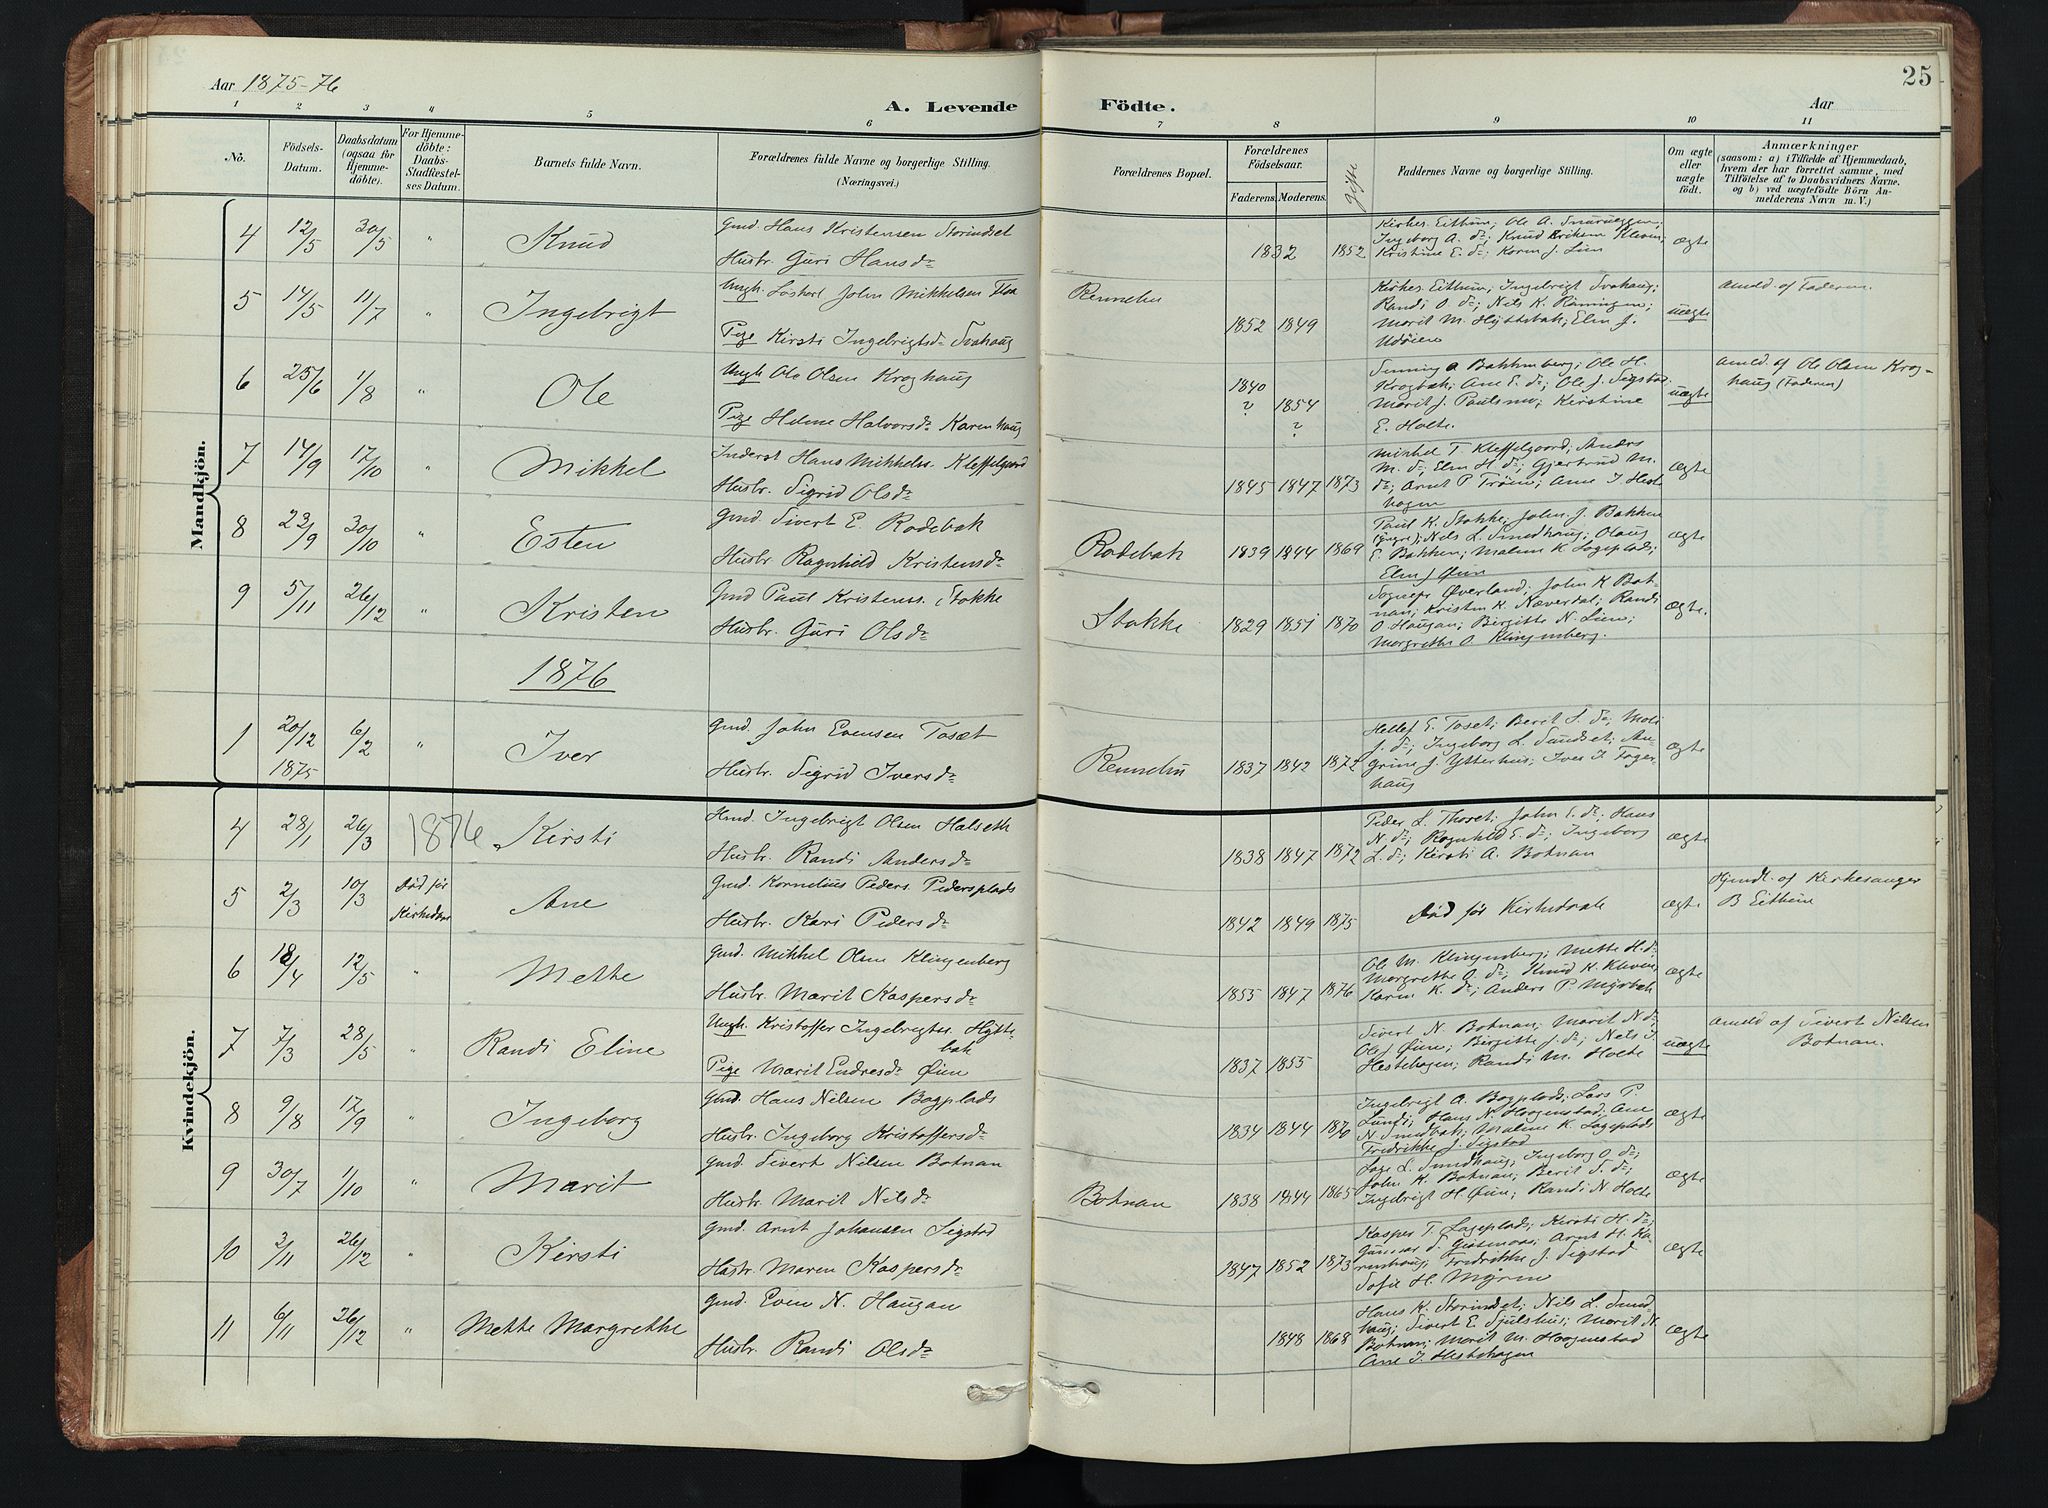 Aar 1875-76
A. Levende Födte.
25
Aar
1 2 3 4 5 6 7 8 9 10 11
No.
Födsels-Datum.
Daabsdatum (ogsaa for Hjemmedöbte).
For Hjemmedöbte: Daabs-Stadfæstelses Datum.
Barnets fulde Navn.
Forældrenes fulde Navne og borgerlige Stilling.
(Næringsvei.)
Forældrenes Bopæl.
Forældrenes Födselsaar.
Faderens. Moderens.
Gifte
Faddernes Navne og borgerlige Stilling.
Om ægte eller uægte födt.
Anmærkninger
(saasom: a) i Tilfælde af Hjemmedaab, hvem der har forrettet samme, med Tilföielse af to Daabsvidners Navne, og b) ved uægtefödte Börn Anmelderens Navn m. V.)
Mandkjön.
4 12/5 30/5 " Knud
Gmd. Hans Kristensen Storindset
Husbr. Guri Hansdr
1832 1852
Kirkes. Eithun; Ole A. Snurueggen;
Ingeborg A. dr; Knud Eriksen Kleven;
Kristine E. dr; Karen J. Lien
ægte
5 14/5 11/7 " Ingebrigt
Ungk. Løskarl John Mikkelsen Floa
Pige Kirsti Ingebrigtsdr Svahaug
Rennebu
1852 1849
Kirkes. Eithun; Ingebrigt Svahaug;
Randi O. dr; Nils K. Rönningen;
Marit M. Hyttebak; Elen J.
Udöien
uægte
anmld. af Faderen.
6 25/6 1/8 " Ole
Ungk. Ole Olsen Kroghaug
Pige Helene Halvorsdr Karenhaug
1840 ? 1854 ?
Bakkenberg; Ole H.
Krogbak; Ane E. dr; Ole J. Sigstad
Marit J. Paulsmo; Kerstine
E. Holte.
uægte
anmld. af Ole Olsen Kroghaug (Faderen)
7 14/9 17/10 " Mikkel
Inderst Hans Mikkelss. Kleffelgaard
Husbr. Sigrid Olsdr
1845 1847 1873
Mikkel T. Kleffelgaard; Anders
M. dr; Elen H dr; Gjertrud M.
dr; Arnt P. Tröen; Ane I Heste
hagen
ægte
8 23/9 30/10 " Esten
Gmd. Sivert E. Rodebak
Husbr. Ragnhild Kristensdr
Rodebak
1839 1844 1869
Paul K. Stokke; John. J. Bakken
(yngre); Nils L. Smedhaug; Olaus
E. Bakken; Malene K. Lageplads;
Elen J Øien
ægte
9 5/11 26/12 " Kristen
Gmd Paul Kristenss. Stokke
Husbr. Guri Olsdr
Stokke
1829 1851 1870
Sognepr Øverland; John K Bot-
nan; Kristen K. Næverdal; Randi
O. Haugan; Birgitte N. Lien;
Margrethe O. Klingenberg.
ægte.
1876
1 20/12 1875 6/2 " Iver
Gmd. John Evensen Tosæt
Husbr. Sigrid Iversdr
Rennebu
1837 1842 1872
Hellef E. Toset; Berit S. dr; Mali
J. dr; Ingeborg L. Sundset; An-
grine J. Ytterhus; Iver I. Fager
haug
ægte
Kvindekjön.
4 28/1 26/3 1876 Kirsti
Gmd. Ingebrigt Olsen Halseth
Husbr. Randi Andersdr
1838 1847 1872
Peder L. Thoset; John E. dr; Hans
N. dr; Ragnhild E. dr; Ingeborg
L. dr; Kirsti A. Botnan
ægte
5 2/3 10/3 Død før Kirkedaab Ane
Gmd. Kornelius Peders. Pedersplads
Husbr. Kari Pedersdr
1842 1849 1875
Død før Kirkedaab
ægte
Hjmdt. af Kirkesanger
B Eithun
6 18/4 12/5 " Mette
Gmd. Mikkel Olsen Klingenberg
Husbr. Marit Kaspersdr
1855 1847 1876
Ole M. Klingenberg; Mette H. dr;
Margrethe O. dr; Knud K. Kleven;
Karen K. dr; Anders P. Myrbak
ægte
7 7/3 28/5 " Randi Eline
Ungk. Kristoffer Ingebrigtss. Hytte
bak
Pige Marit Endresdr Øien
1837 1855
Sivert N. Botnan; Marit N dr;
Ole J Øien; Birgitte J. dr; Nels I.
Hestehagen; Randi M. Holte
uægte
anmld af Sivert Nilsen
Botnan.
8 9/8 17/9 " Ingeborg
Gmd. Hans Nilsen Bagplads
Husbr. Ingeborg Kristoffersdr
1834 1844 1870
Ingebrigt A. Bagplads; Lars P.
Lund; Hans N. Haagenstad; Ane
N. Smedbak; Malene K. Lageplads
Fredrikke J. Sigstad
ægte
9 30/7 1/10 Marit
Gmd. Sivert Nilsen Botnan
Husbr. Marit Nilsdr
Botnan
1838 1844 1865
Lage L. Smedhaug; Ingeborg O. dr;
John K. Botnan; Berit S. dr;
Ingebrigt H. Øien; Randi N Holte
ægte
10 3/11 26/12 " Kirsti
Gmd. Arnt Johansen Sigstad
Husbr. Maren Kaspersdr
1847 1852 1873
Kasper T. Lageplads; Kirsti H. dr;
Gunnar S. Gistenaas; Arnt H. Ka-
renhaug; Fredrikke J. Sigstad
Sofie H. Myren
ægte
11 6/11 26/12 " Mette Margrethe
Gmd. Even N. Haugan
Husbr. Randi Olsdr
1848 1868
Hans K. Storindset; Nils L. Smed-
haug; Sivert E. Sjulshus; Marit N.
Botnan; Marit M. Haagenstad
Ane I. Hestehagen
ægte